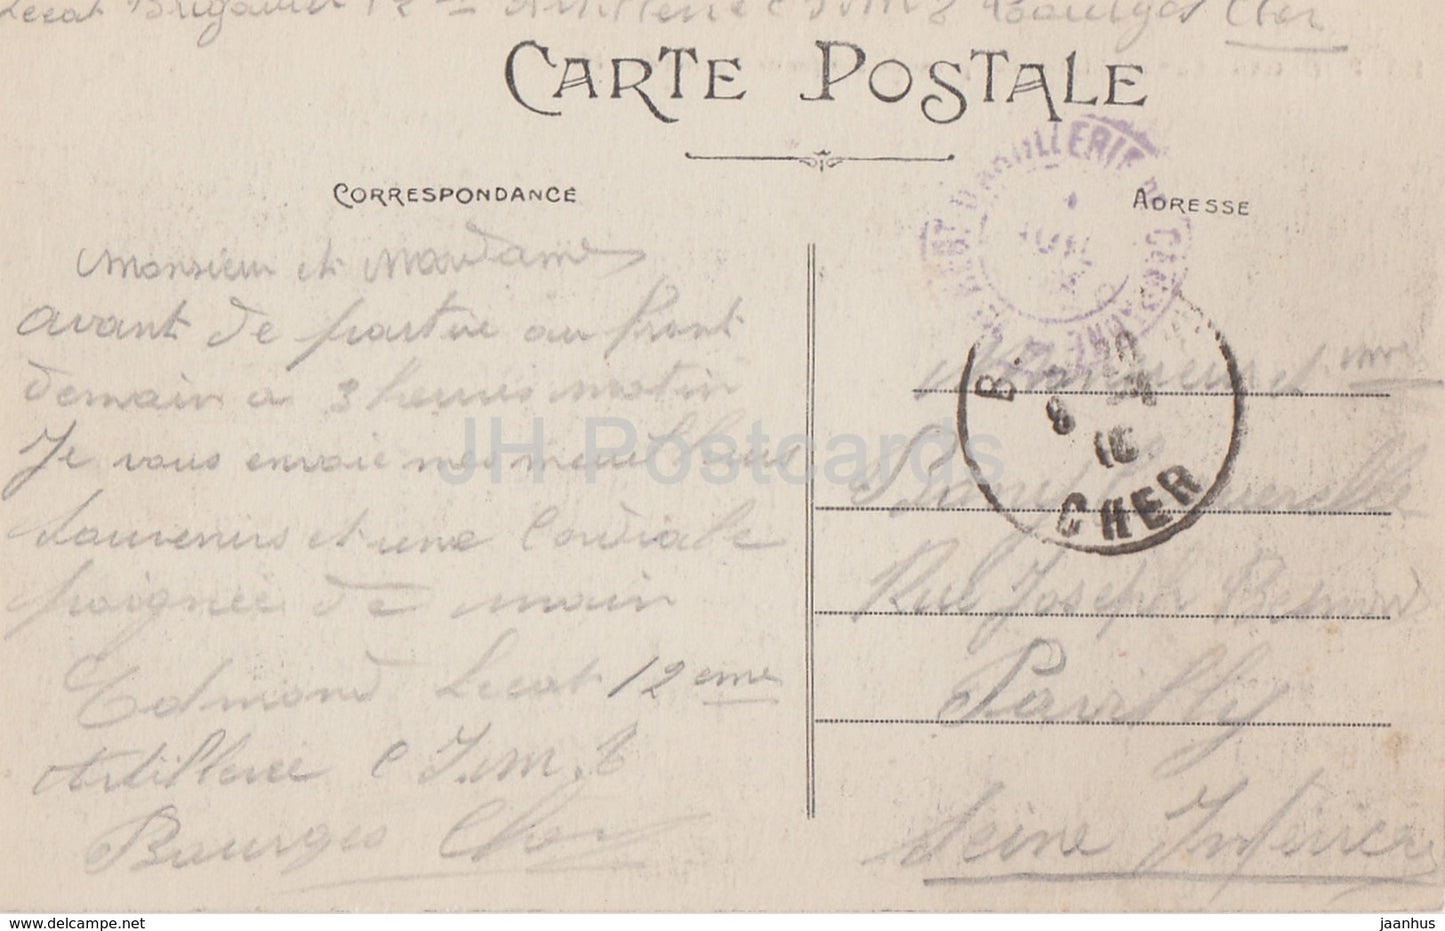 Lecat Brigadier 12me Artillerie C I M 8 Bourges Cher
CARTE POSTALE
CORRESPONDANCE
ADRESSE
Monsieur et Mandame
avant de partire au front
demain a 3 heures matin
Je vous envoie mes meuilleurs
Souvenirs et une Cordiale
poignee de main
Edmond Lecat 12eme
Artillerie C I. M. 8
Bourges Cher
Monsieur et Mme
Rue Joseph
Pavilly
Seine Inferieure
B.
8
CHER
D'ARTILLERIE DE
JUIN
JH Postcards
www.delcampe.net
jaanhus